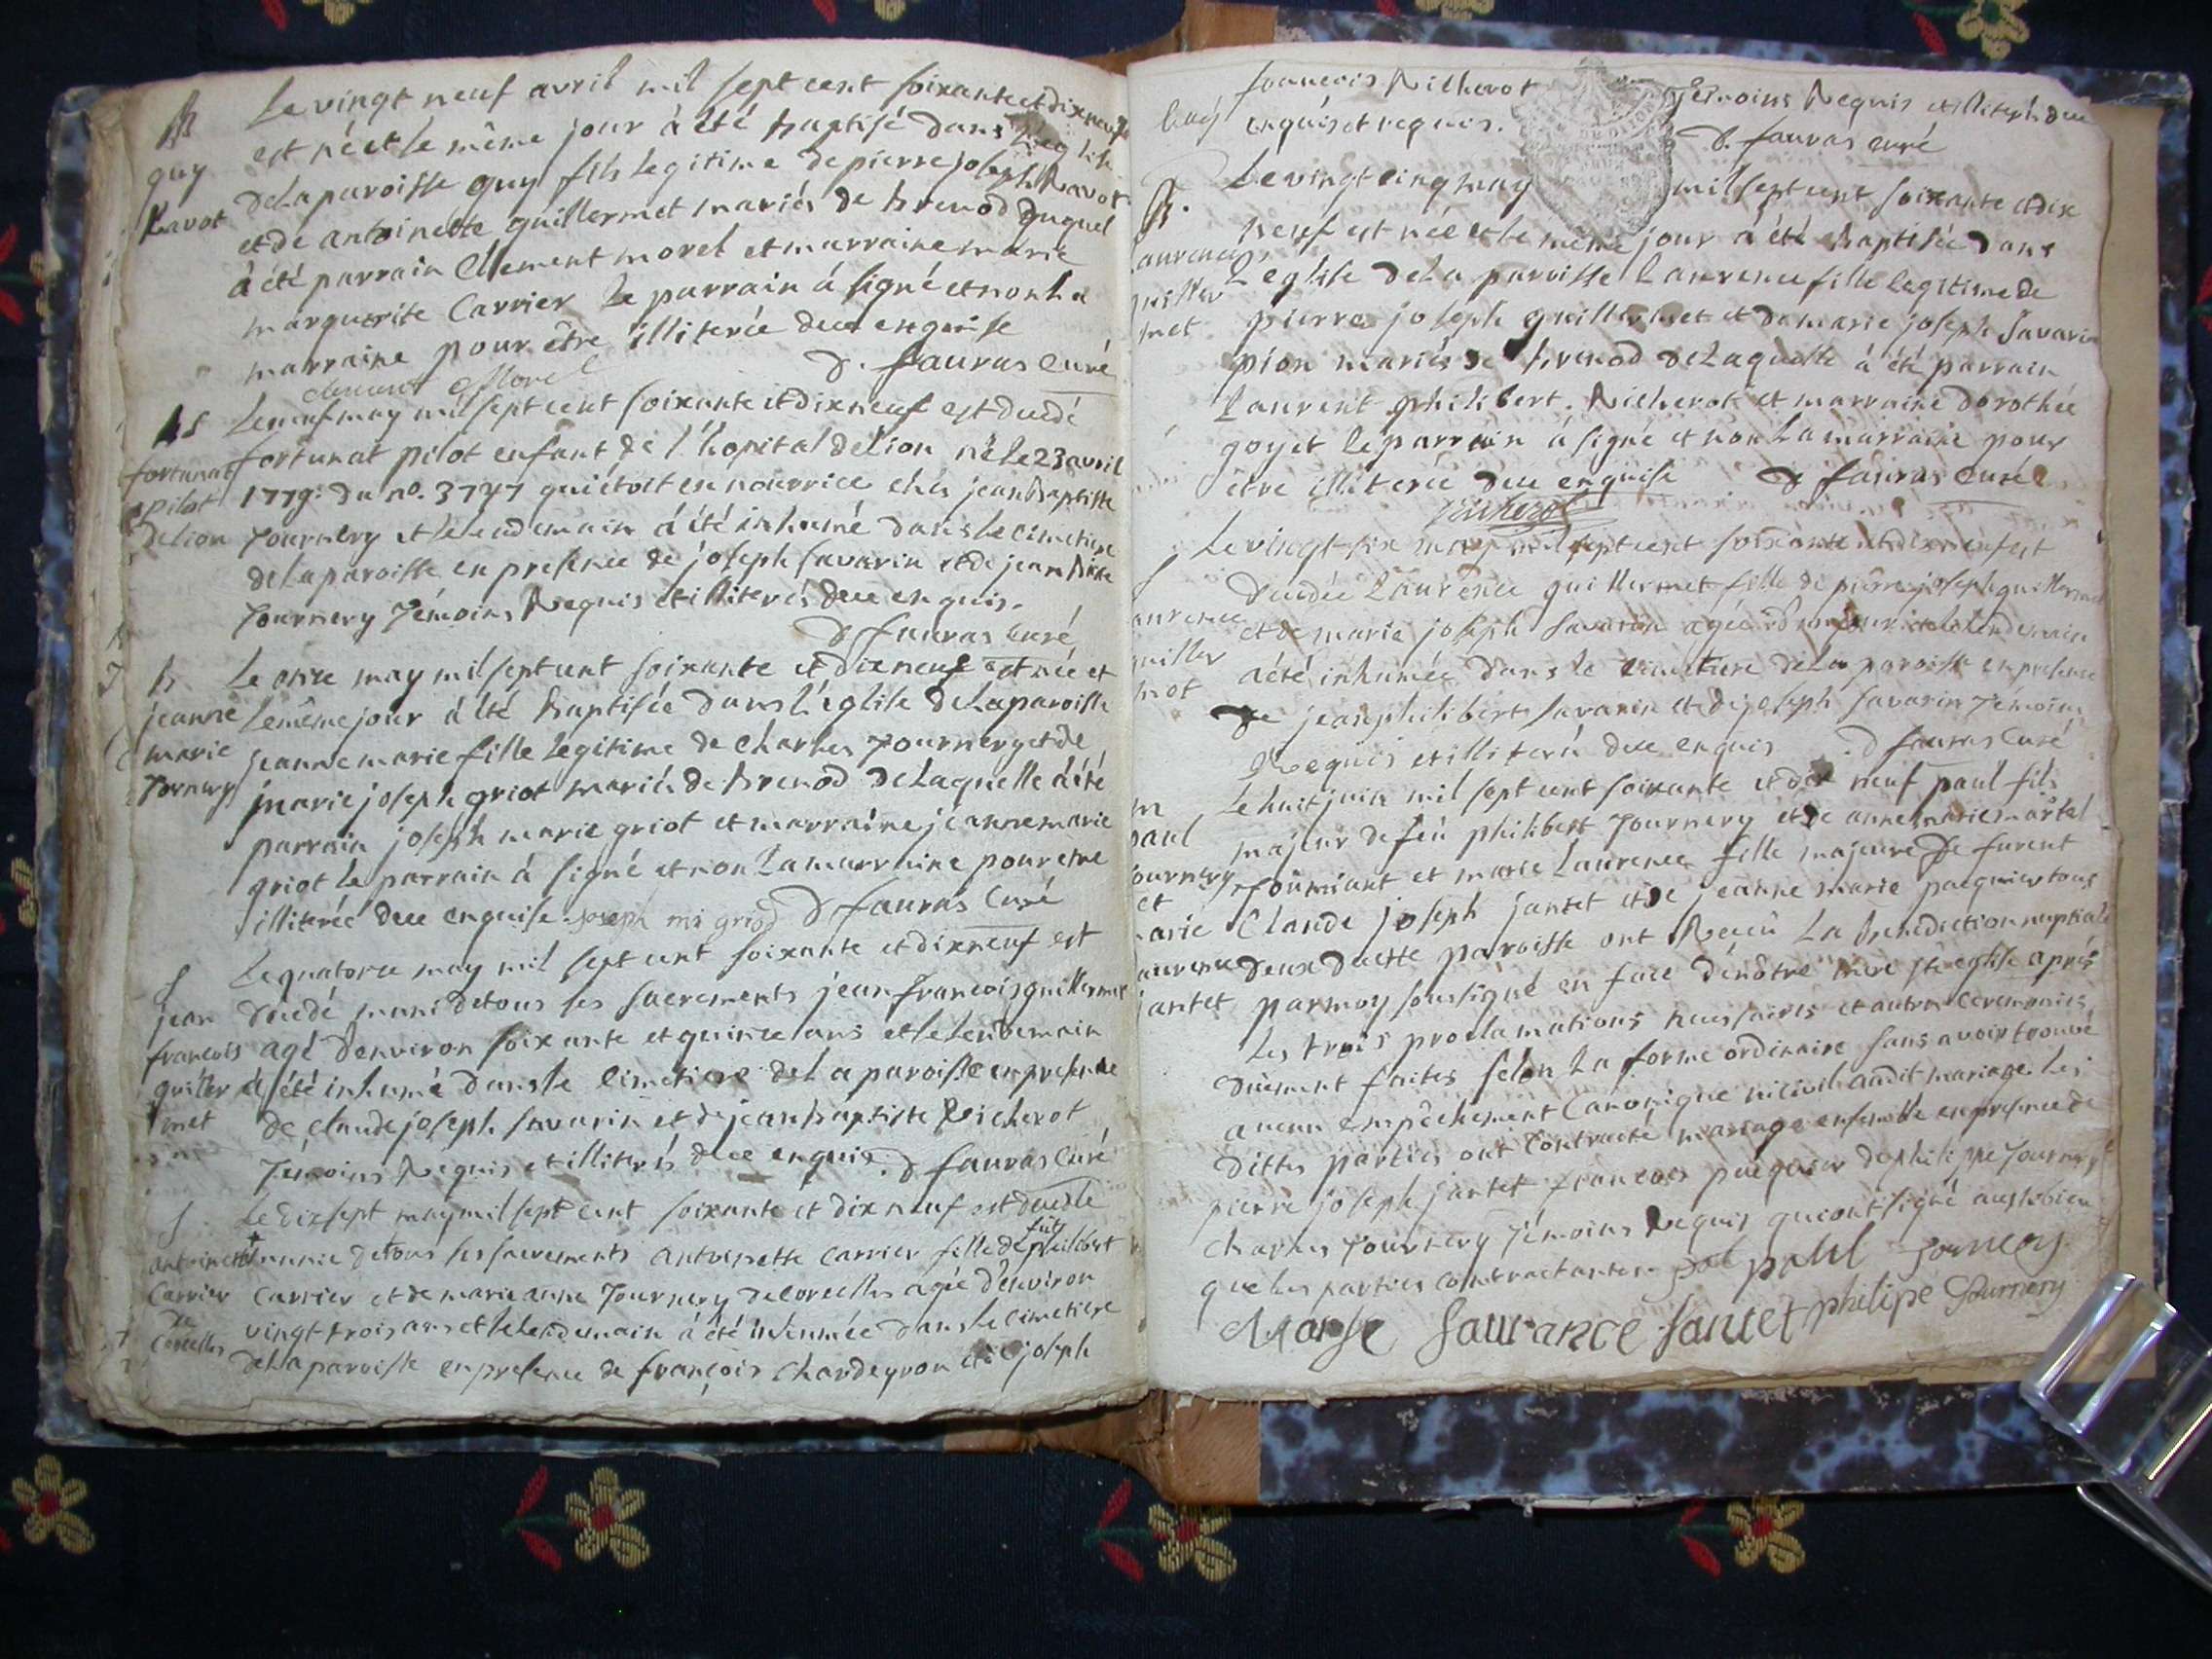 B
guy
Ravot
Le vingt neuf avril mil sept cent soixante et dix neuf
est né et le même jour á été baptisé dans L'eglise
de La paroisse guy fils legitime de pierre joseph Ravot
et de antoinette guillermet mariés de brenod duquel
á été parrain Clement morel et marraine marie
marguerite Carrier Le parrain á signé et non La
marraine pour être illiterée dece enquise
D. fauras Curé
clement Morel
fortunat
pilot
De lion
Le neuf may mil sept cent soixante et dix neuf est decedé
fortunat pilot enfant de l'hopital de lion né le 23 avril
1779. du no. 3747 qui étoit en nourrice chés jean baptiste
Tournery et le lendemain á été inhumé dans le cimetiere
de La paroisse en presence de joseph savarin et de jean
Tournery Témoins Requis et illiterés dece enquis.
D fauras Curé
B
jeanne
marie
Tornery
Le onze may mil sept cent soixante et dix neuf est née et
Le même jour á été baptisée dans L'église de La paroisse
jeanne marie fille Legitime de Charles Tournery et de
marie joseph griot mariés de brenod de Laquelle á été
parrain joseph marie griot et marraine jeanne marie
griot le parrain á signé et non La marraine pour etre
illiterée dece enquise joseph mi griod D fauras Curé
S
jean
francois
guiller
met
Le quatorze may mil sept cent soixante et dix neuf est
decedé muni de tous les sacrements jean francois guillermet
agé d'environ soixante et quinze ans et le lendemain
á été inhumé dans le cimetiere de La paroisse en presence
de claude joseph savarin et de jean baptiste Richerot
Témoins Requis et illiterés dece enquis. D fauras Curé
S
antoinette
Carrier
de
Corcelles
Le dix sept may mil sept cent soixante et dix neuf est decedée
munie de tous les sacrements antoinette Carrier fille de feu philibert
Carrier et de marie anne Tournery de Corcelles agée d'environ
vingt trois ans et le lendemain á été inhumée dans le cimetiere
de La paroisse en presence de françois Chardeyron et de joseph
francois Richerot Temoins Requis et illiterés dece
enquis et requis.
D. fauras curé
B.
Laurence
guiller
met
Le vingt cinq may mil sept cent soixante et dix
neuf est née et le même jour á été baptisée dans
L'eglise de La paroisse Laurence fille legitime de
pierre joseph guillermet et de marie joseph Savarin
pion mariés de brenod de Laquelle á été parrain
Laurent philibert. Richerot et marraine dorothée
goyet le parrain á signé et non La marraine pour
être illiterée dece enquise D fauras Curé
Richerot
S
Laurence
guiller
met
Le vingt six may mil sept cent soixante et dix neuf est
decedée Laurence guillermet fille de pierre joseph guillermet
et de marie joseph Savarin agée d'un jour et le lendemain
a été inhumée dans le cimetiere de La paroisse en presence
de jean philibert savarin et de joseph savarin Témoins
Requis et illiterés dece enquis D fauras Curé
m
paul
Tournery
et
marie
Laurence
jantet
Le huit juin mil sept cent soixante et dix neuf paul fils
majeur de feu philibert Tournery et de anne marie martel
et marie Laurence fille majeure de furent
Claude joseph jantet et de jeanne marie pacquier tous
deux de cette paroisse ont Reçu La benediction nuptiale
par moy soussigné en face de nôtre mere ste eglise aprés
les trois proclamations necessaires et autres ceremonies
duement faites selon La forme ordinaire sans avoir trouvé
aucun empêchement Canonique ni civil audit mariage. les
dittes parties ont contracté mariage ensemble en presence de
pierre joseph jantet francois pacquier de philippe Tournery
Charles Tournery Témoins Requis qui ont signé aussi bien
que les parties contractantes. paul Jornery
Marie Laurance Jantet philipe Tournery